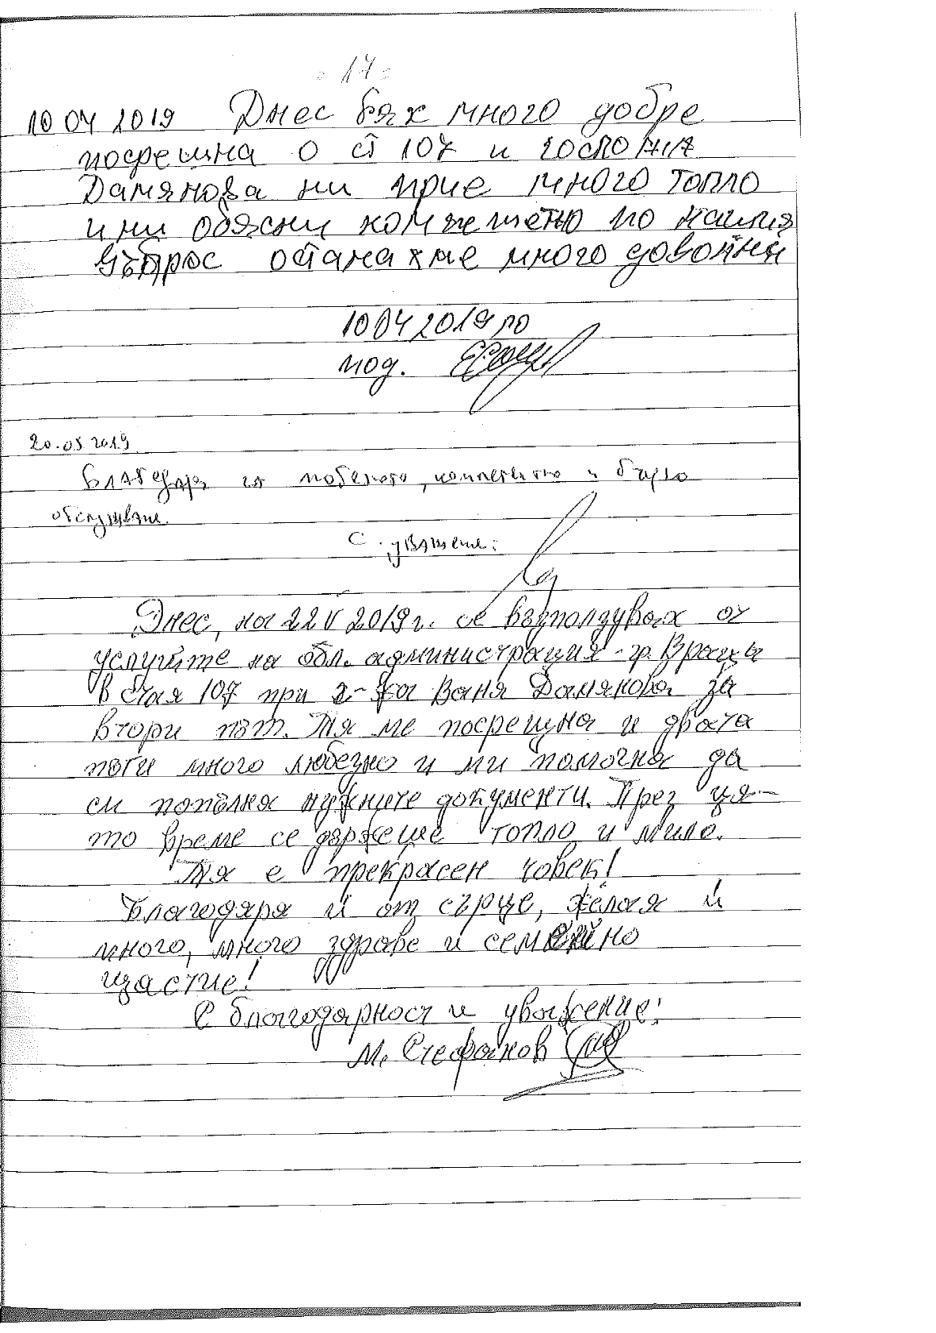 17
10 04 2019 Днес бях много добре
посрешна о ст 107 и
Дамянова ни прие много топло
и ни обясни по нашия
въпрос останахме много
10 04 2019
20.05 2019
Благодаря за , компетентно и бързо
обслужване.
С уважение:
Днес, на 22 V 2019 г. се възползувах от
услугите на обл. администрация - гр. Враца
в стая 107 при г-жа Ваня Дамянова за
втори път. Тя ме посрещна и двата
пъти много любезно и ми помогна да
си попълня нужните документи. През ця-
то време се държеше топло и мило.
Тя е прекрасен човек!
Благодаря ѝ от сърце, желая ѝ
много, много здраве и семейно
щастие!
С благодарност и уважение:
М. Стефанов